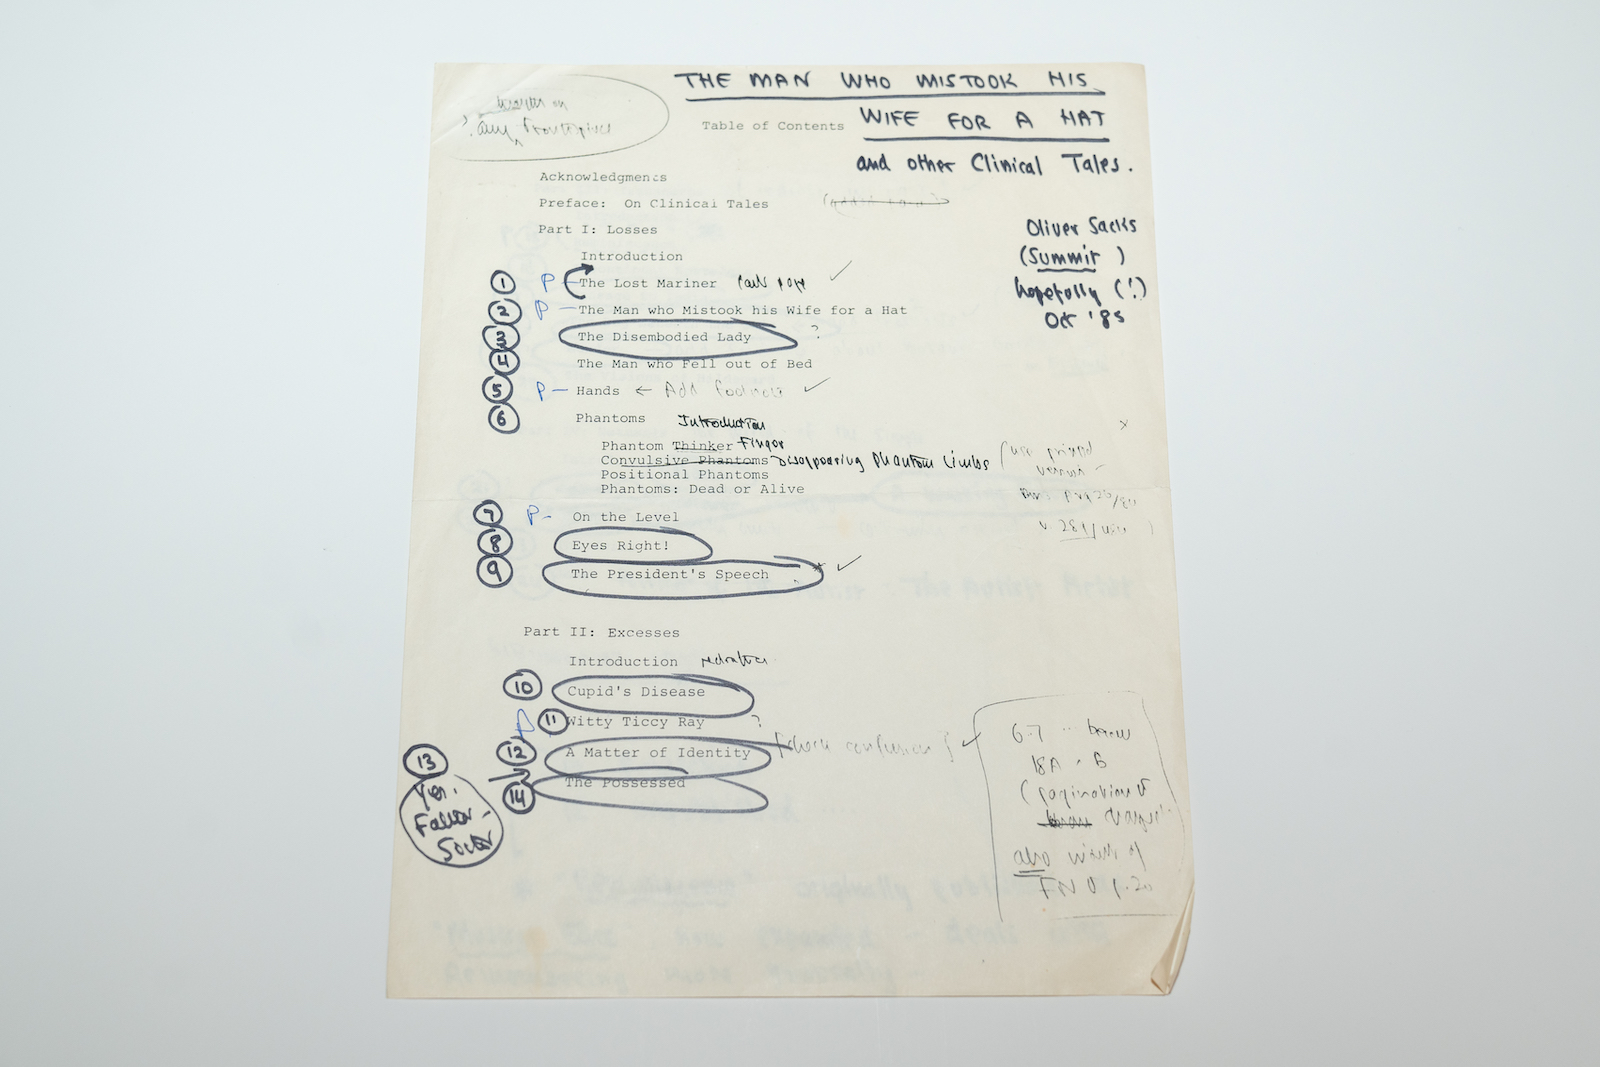 THE MAN WHO MISTOOK HIS
WIFE FOR A HAT
Table of Contents
and other Clinical Tales.
Acknowledgments
Preface: On Clinical Tales
Oliver Sacks
(Summit)
hopefully (!)
Oct '85
Part I: Losses
Introduction
1 P – The Lost Mariner
2 P – The Man who Mistook his Wife for a Hat
3 The Disembodied Lady ?
4 The Man who Fell out of Bed
5 P – Hands ← Add footnote
6 Phantoms Introduction
Phantom Thinker Finger
Convulsive Phantoms Disappearing Phantom Limbs
Positional Phantoms
Phantoms: Dead or Alive
7 P – On the Level
8 Eyes Right!
9 The President's Speech *
Part II: Excesses
Introduction
10 Cupid's Disease
P 11 Witty Ticcy Ray ?
12 A Matter of Identity [check confusion]
13 Yes, Father-Sister
14 The Possessed
6-7
18A · B
(pagination
also
FN p. 20